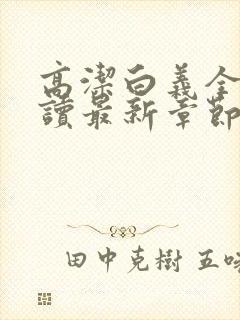 高潔白義全
讀最新章節
田中克樹 五